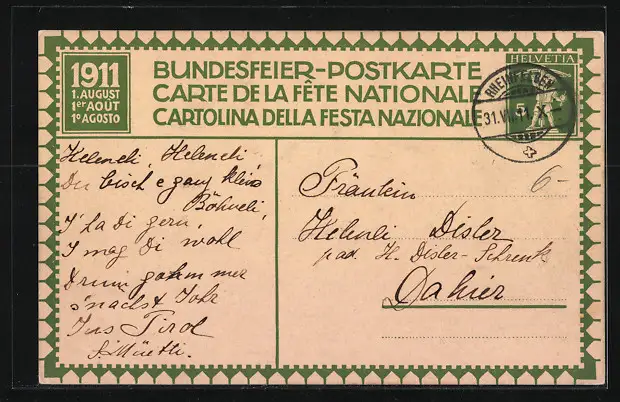 1911
1. AUGUST
1er AOÛT
1o AGOSTO
BUNDESFEIER-POSTKARTE
CARTE DE LA FÊTE NATIONALE
CARTOLINA DELLA FESTA NAZIONALE
HELVETIA
5
RHEINFELDEN
31.VII.11.XI
Heleneli, Heleneli,
Du bisch e ganz kleis
Böhneli,
I' ha di gern,
I mag di wohl
Drum gohm mer
s'nächst Johr
Ins Tirol
s. Müetti.
6-
Fräulein
Heleneli Disler
pad. H. Disler-Schrenk
Dahier